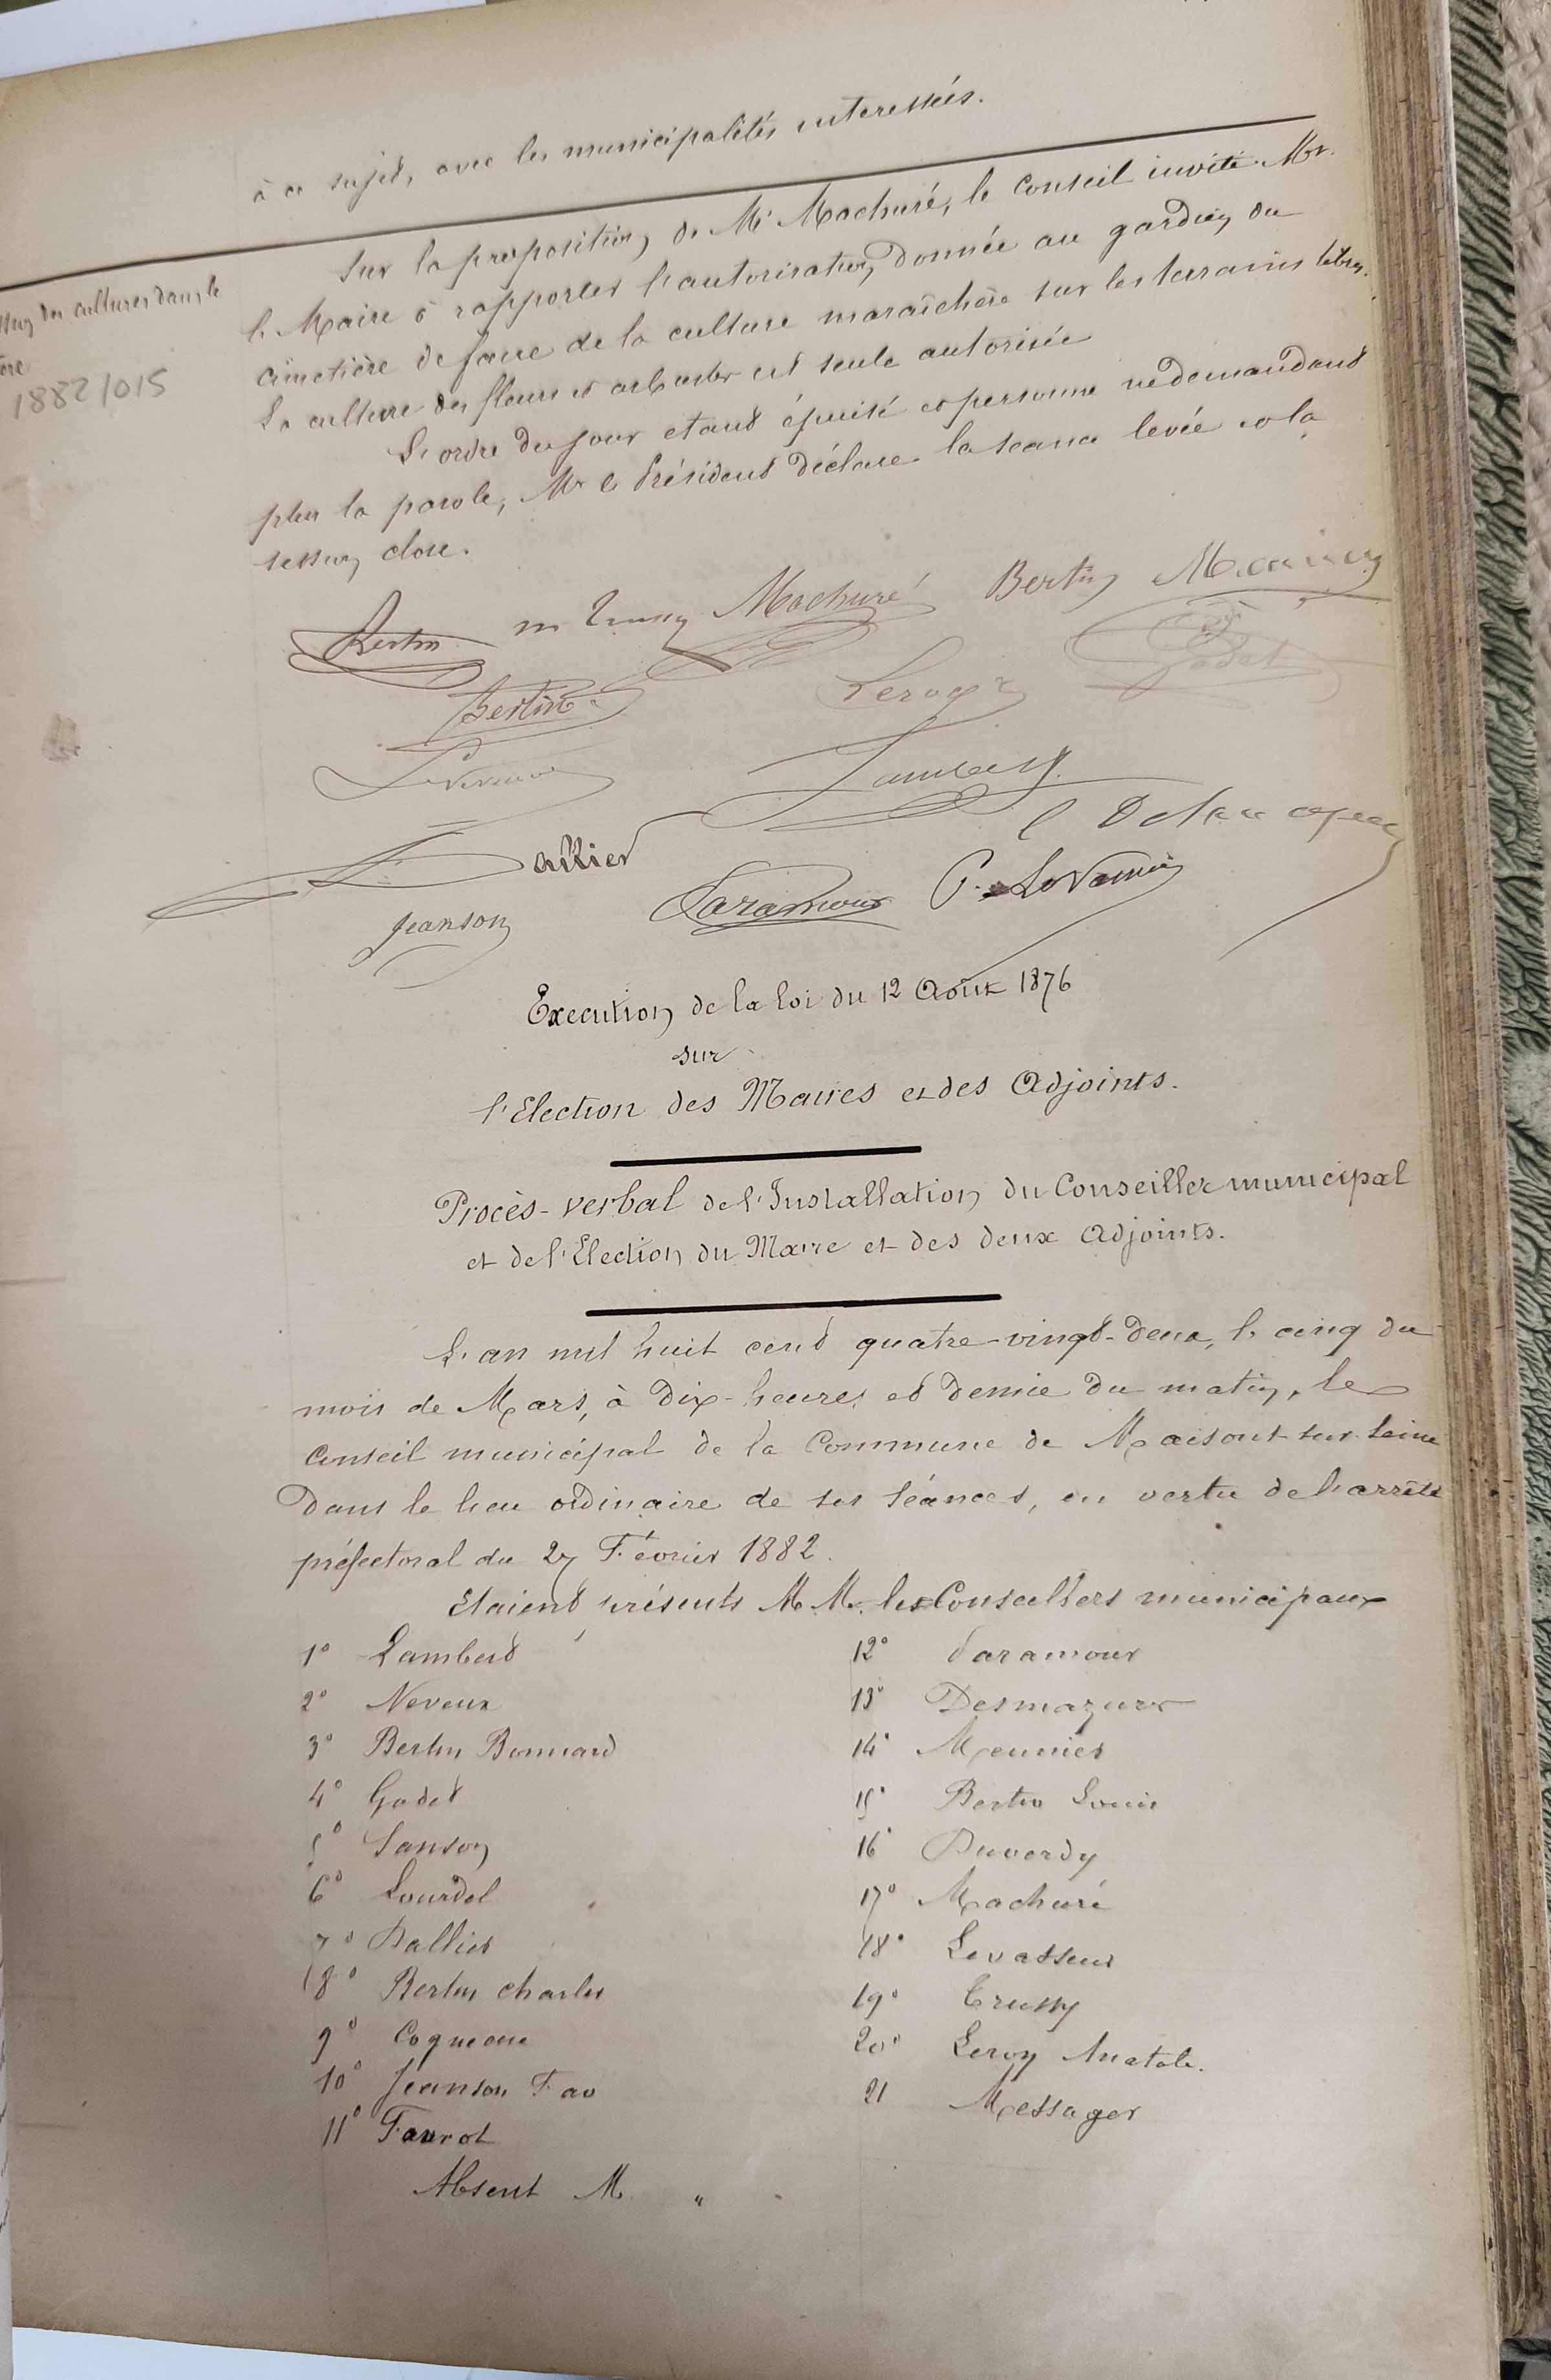 à ce sujet, avec les municipalités interessées.
Sur la proposition de Mr Machuré, le Conseil invite Mr.
le Maire à rapporter l'autorisation donnée au gardien du
cimetière de faire de la culture maraîchère sur les terrains libres.
La culture des fleurs et arbustes est seule autorisée
des cultures dans le
1882/015
L'ordre du jour etant épuisé et personne ne demandant
plus la parole, Mr le Président déclare la séance levée et la
session close.
Bertin m Trussy Machuré Bertin
Bertin Leroy Godet
Lambert
Dallier
Jeanson Paramour
Execution de la loi du 12 Août 1876
sur
l'Election des Maires et des Adjoints.
Procès-verbal de l'Installation du Conseiller municipal
et de l'Election du Maire et des deux Adjoints.
L'an mil huit cent quatre-vingt-deux, le cinq du
mois de Mars, à dix-heures et demie du matin, le
Conseil municipal de la Commune de Maisons sur Seine
Dans le lieu ordinaire de ses séances, en vertu de l'arrêté
préfectoral du 27 Février 1882.
Etaient présents M.M. les Conseillers municipaux
1° Lambert
2° Neveux
3° Bertin Bonnard
4° Godet
5° Sanson
6° Lourdel
7° Dallier
8° Bertin Charles
9° Coqueau
10° Jeanson Fao
11° Favrot
12° Paramour
13° Desmazures
14° Meunier
15° Bertin Louis
16° Duverdy
17° Machuré
18° Levasseur
19° Trussy
20° Leroy Anatole.
21 Messager
Absent M. "